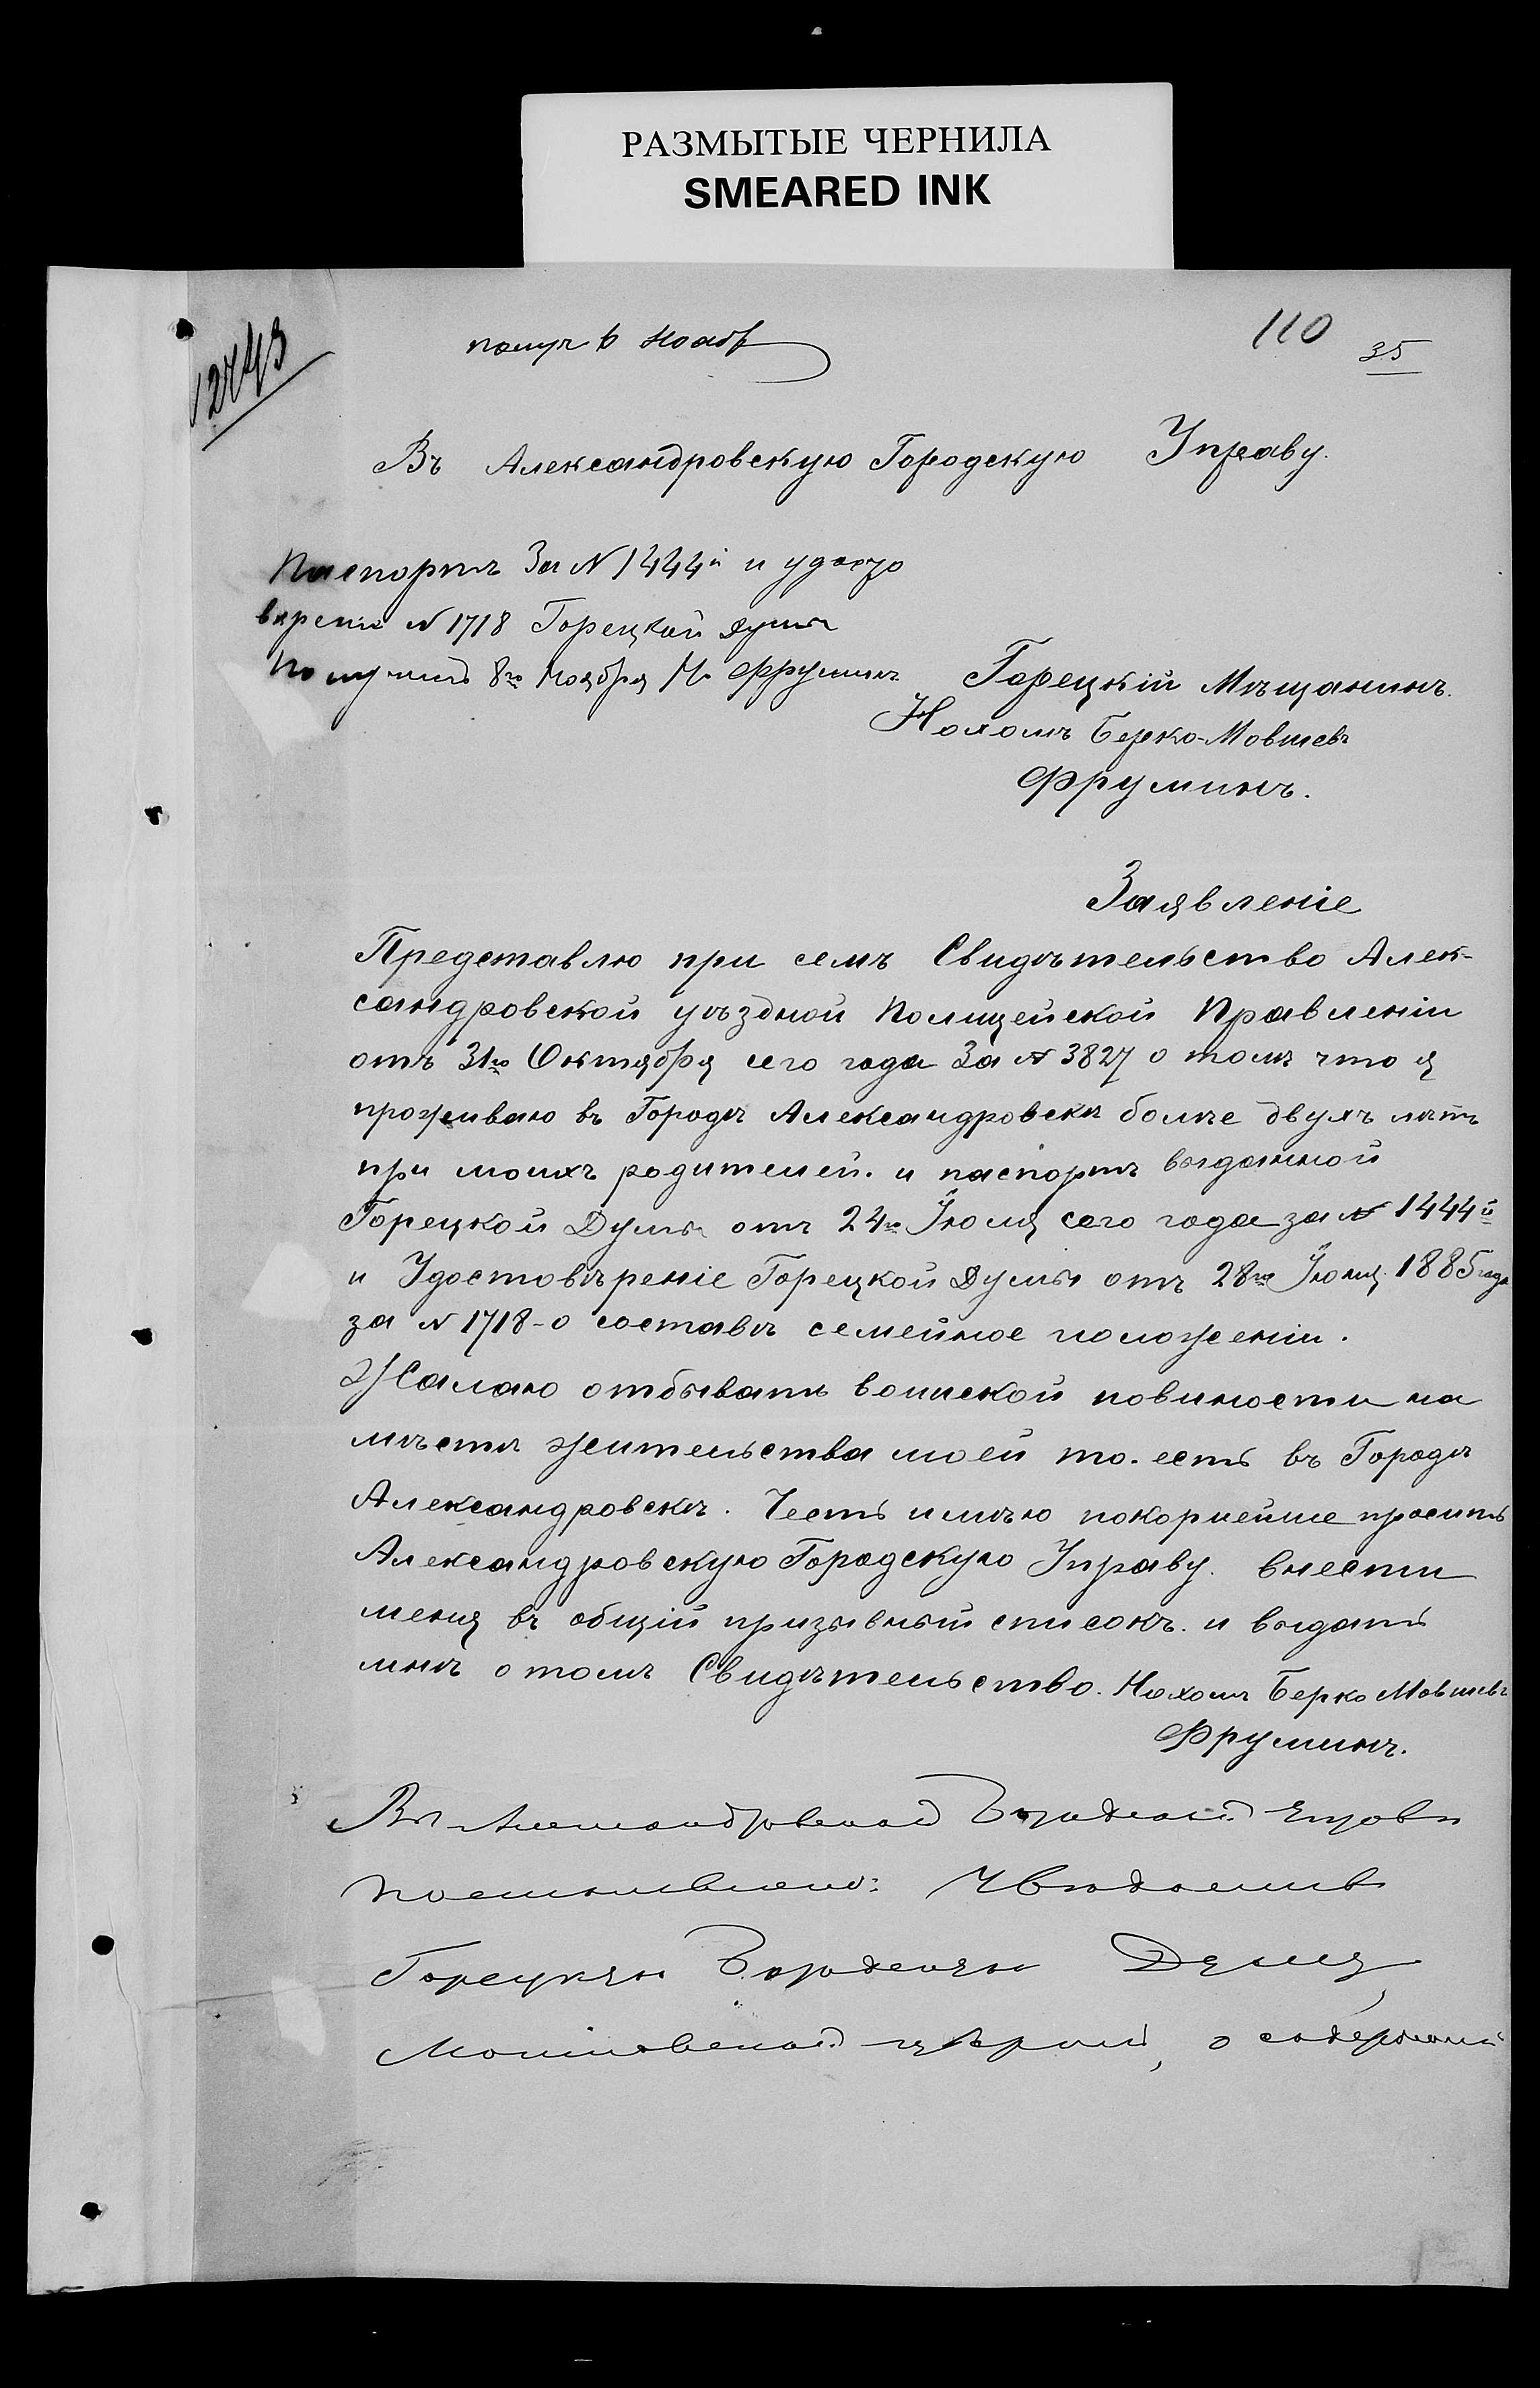 РАЗМЫТЫЕ ЧЕРНИЛА
SMEARED INK
получ 6 Нояб
110
35
Въ Александровскую Городскую Управу.
Паспортъ За N 1444й и удосто
верение N 1718 Горецкой думы
Получилъ 8го Ноября Н. Фруминъ
Горецкій Мѣщанинъ.
Нохомъ Берко-Мовшевъ
Фруминъ.
Заявленіе
Представлю при семъ Свидѣтельство Алек-
сандровской уѣздной Полицейской Правленіи
отъ 31го Октября сего года За N 3827 о томъ что я
проживаю въ Городѣ Александровскѣ болѣе двухъ лѣтъ
при моихъ родителей. и паспортъ выданной
Горецкой Думы отъ 24го Іюля сего года за N 1444й
и Удостовѣреніе Горецкой Думы отъ 28го 1885 года
за N 1718 - о составѣ семейное положеніи.
Жалаю отбывать воинской повиности на
мѣстѣ жительства моей то. есть въ Городѣ
Александровскѣ. Честь имѣю покорнейше просить
Александровскую Городскую Управу. внести
меня въ общій призывный списокъ. и выдать
мнѣ о томъ Свидѣтельство. Нохомъ Берко Мовшевъ
Фруминъ.
Въ Александровской Городской Управѣ
постановлено: Увѣдомивъ
Горецкую Городскую Думу,
Могилевской губерніи, о содержаніи